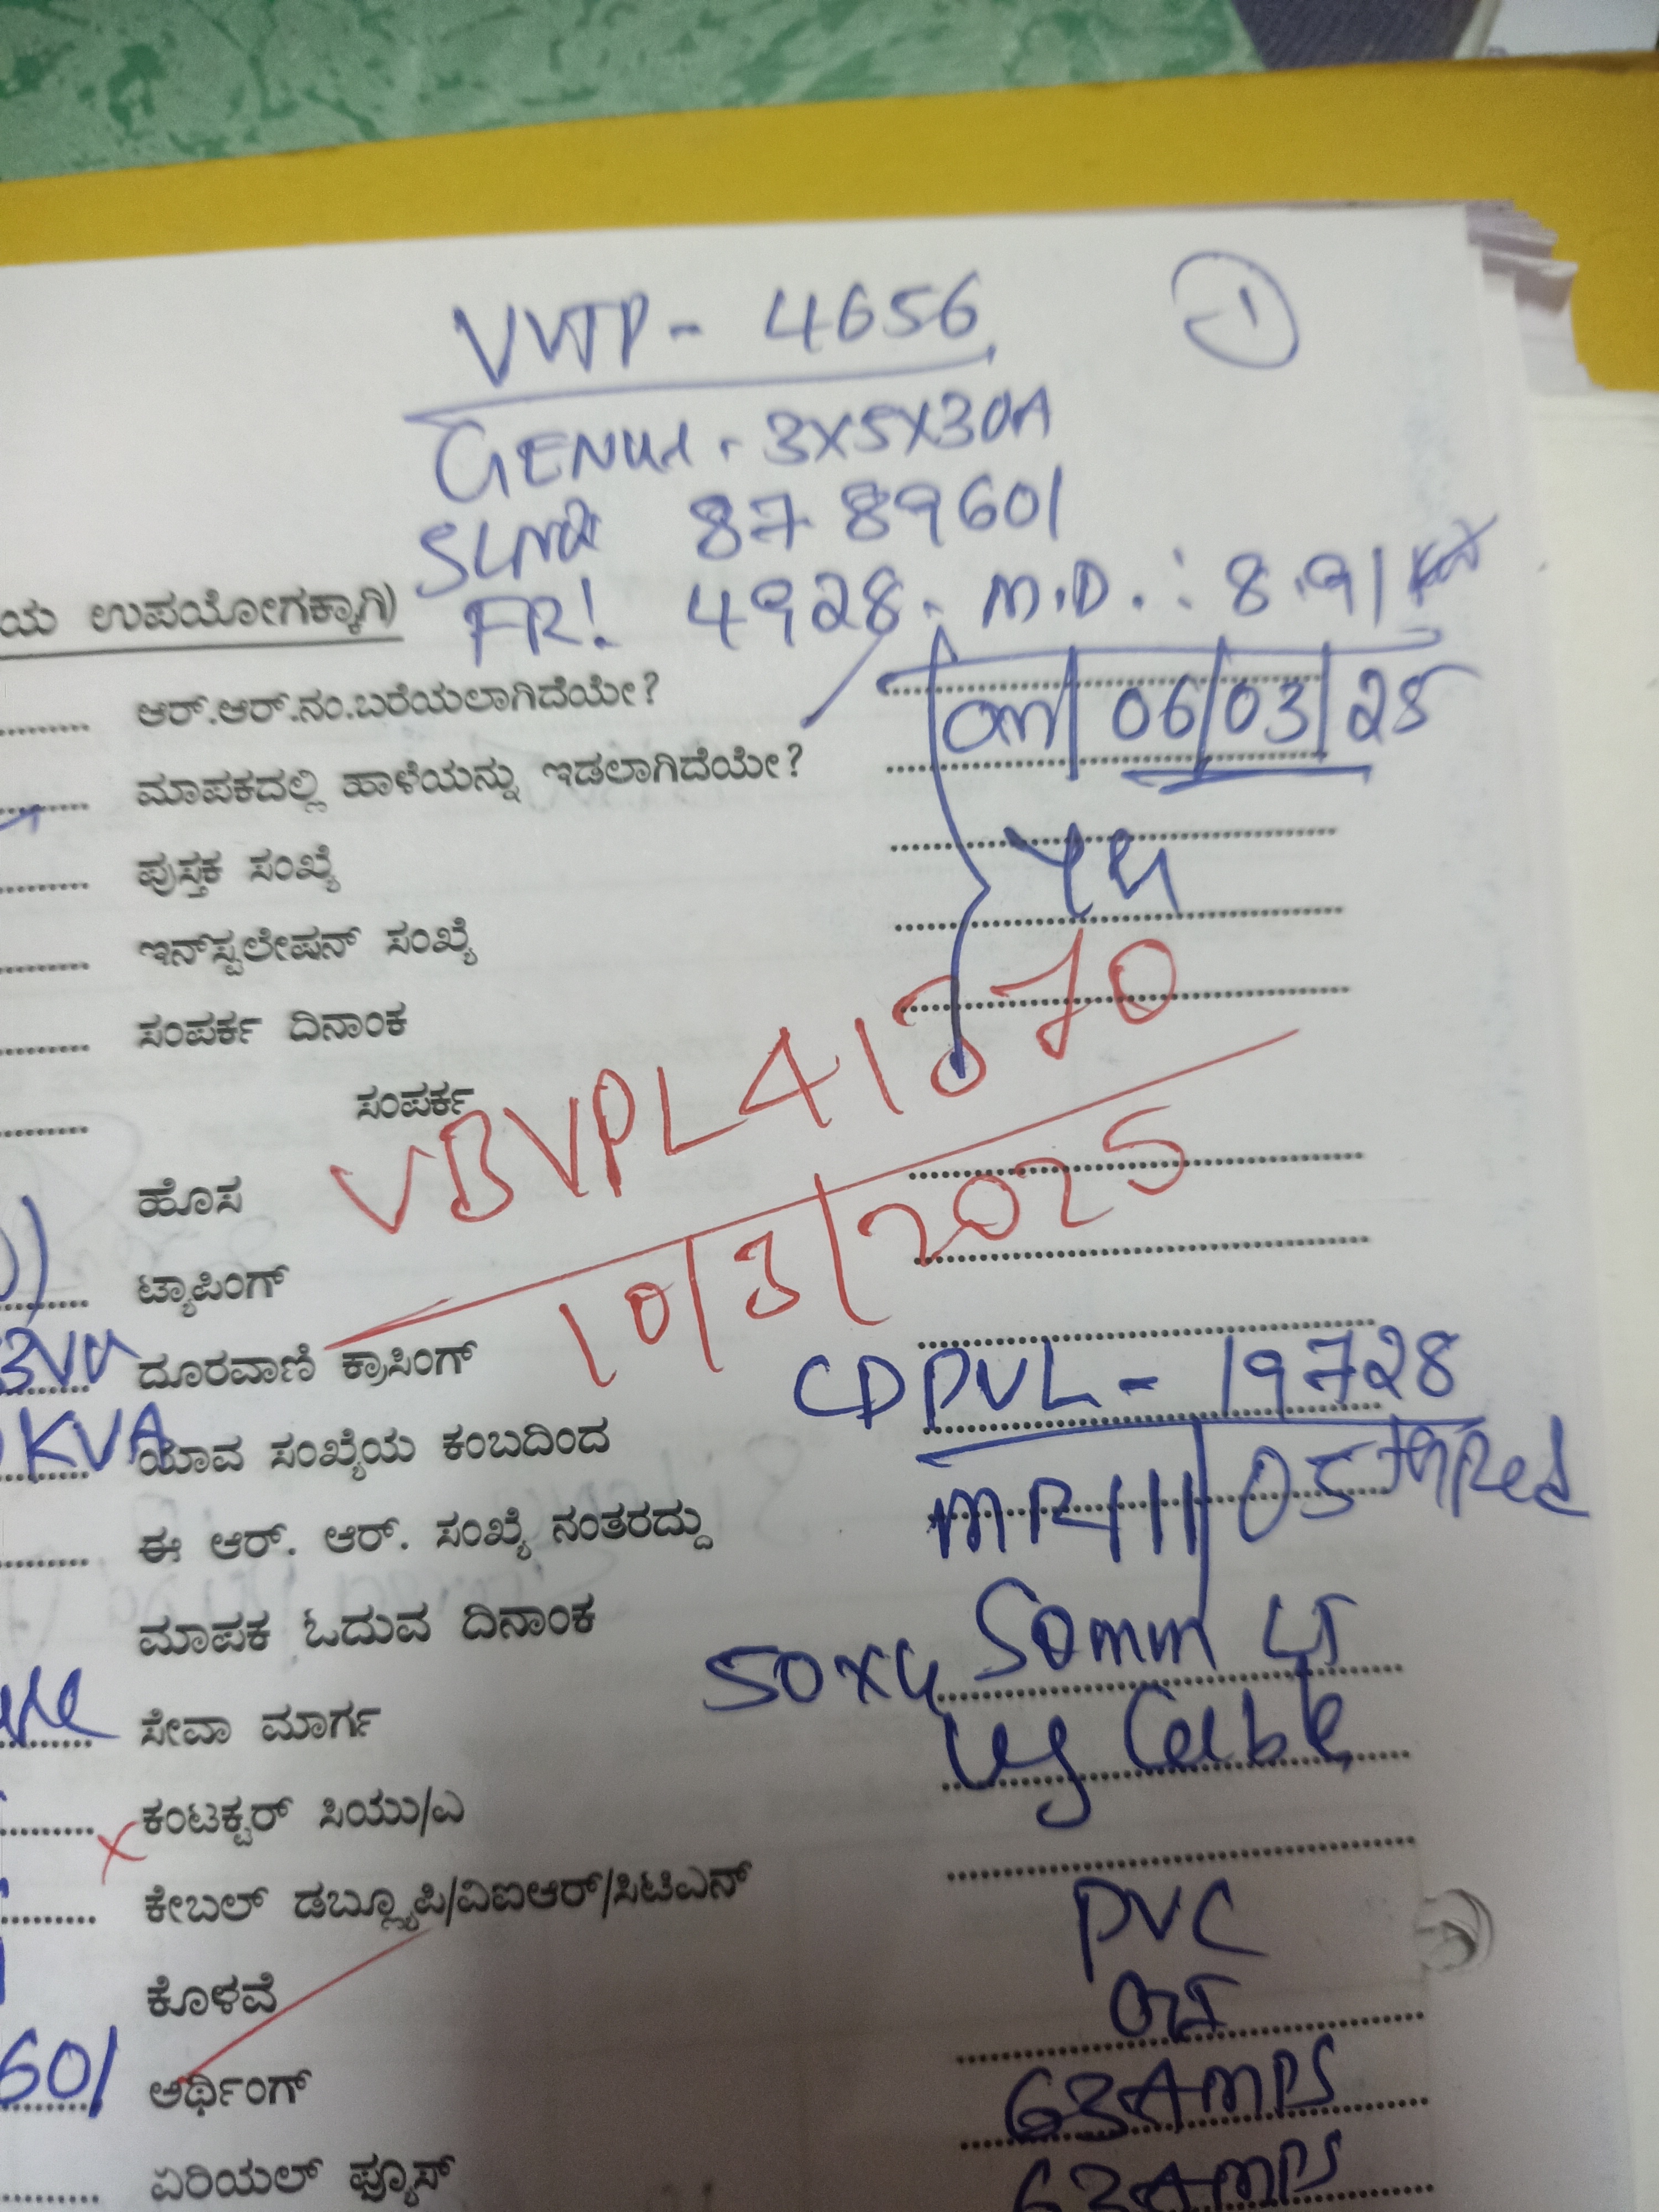 VVTP - 4656
1
GENUS - 3X5X30A
SLNO 8789601
ಯ ಉಪಯೋಗಕ್ಕಾಗಿ)
FR: 4928. M.D. : 8.91
ಆರ್.ಆರ್.ನಂ.ಬರೆಯಲಾಗಿದೆಯೇ?
on 06/03/25
ಮಾಪಕದಲ್ಲಿ ಹಾಳೆಯನ್ನು ಇಡಲಾಗಿದೆಯೇ?
ಪುಸ್ತಕ ಸಂಖ್ಯೆ
ಇನ್‌ಸ್ಟಲೇಷನ್ ಸಂಖ್ಯೆ
ಸಂಪರ್ಕ ದಿನಾಂಕ
ಸಂಪರ್ಕ
VBVPL41370
ಹೊಸ
10/3/2025
ಟ್ಯಾಪಿಂಗ್
ದೂರವಾಣಿ ಕ್ರಾಸಿಂಗ್
CDPVL - 19728
KVA ಯಾವ ಸಂಖ್ಯೆಯ ಕಂಬದಿಂದ
ಈ ಆರ್. ಆರ್. ಸಂಖ್ಯೆ ನಂತರದ್ದು
05th
ಮಾಪಕ ಓದುವ ದಿನಾಂಕ
50X4 50mm LT
ಸೇವಾ ಮಾರ್ಗ
ug Cable
ಕಂಟಕ್ಟರ್ ಸಿಯು/ಎ
ಕೇಬಲ್ ಡಬ್ಲ್ಯೂಪಿ/ವಿಐಆರ್/ಸಿಟಿಎನ್
PVC
ಕೊಳವೆ
601 ಅರ್ಥಿಂಗ್
63AMPS
ಏರಿಯಲ್ ಫ್ಯೂಸ್
63AMPS